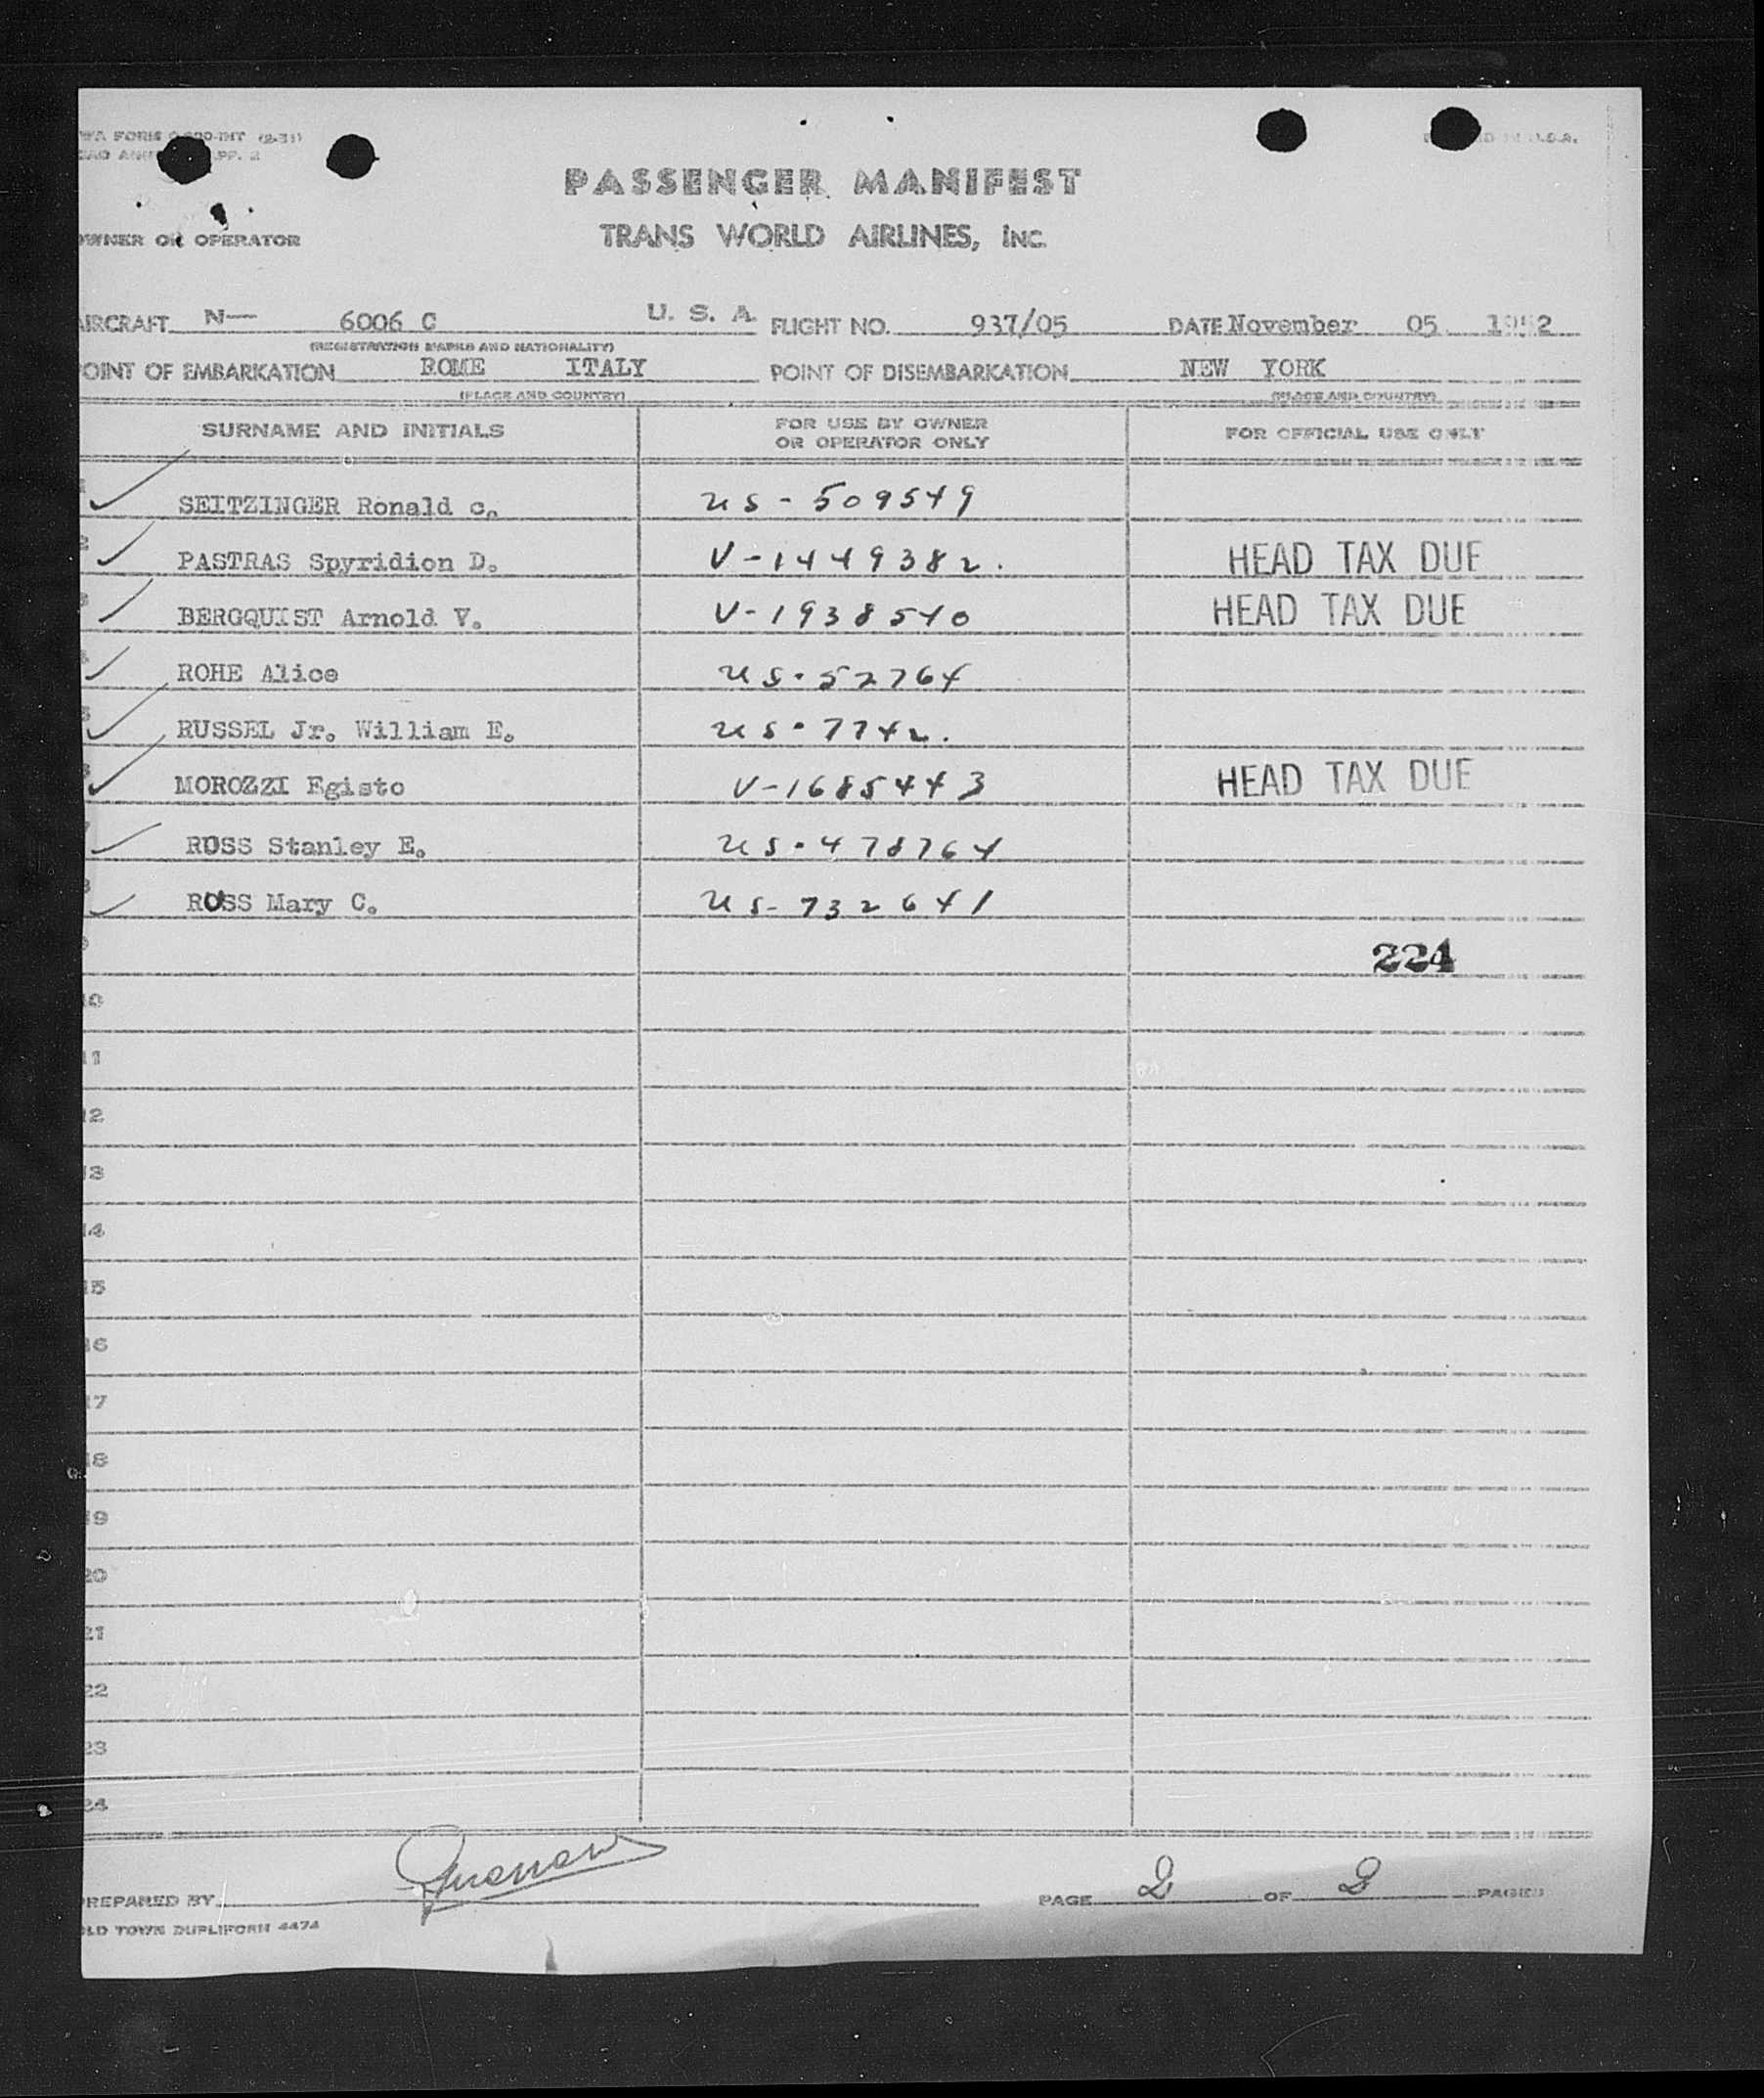 PASSENGER MANIFEST
OWNER OR OPERATOR TRANS WORLD AIRLINES, INC.
AIRCRAFT N— 6006 C U. S. A. FLIGHT NO. 937/05 DATE November 05 1952
(REGISTRATION MARKS AND NATIONALITY)
POINT OF EMBARKATION ROME ITALY POINT OF DISEMBARKATION NEW YORK
(PLACE AND COUNTRY) (PLACE AND COUNTRY)
SURNAME AND INITIALS FOR USE BY OWNER OR OPERATOR ONLY FOR OFFICIAL USE ONLY
SEITZINGER Ronald c. US - 509549
2 PASTRAS Spyridion D. V-1449382. HEAD TAX DUE
3 BERGQUIST Arnold V. V-1938540 HEAD TAX DUE
ROHE Alice US-52764
5 RUSSEL Jr. William E. US-7742.
MOROZZI Egisto V-1685443 HEAD TAX DUE
7 ROSS Stanley E. US-478764
8 ROSS Mary C. US-732641
9 224
10
11
12
13
14
15
16
17
18
19
20
21
22
23
24
PREPARED BY PAGE 2 OF 2 PAGES
OLD TOWN DUPLIFORM 4474